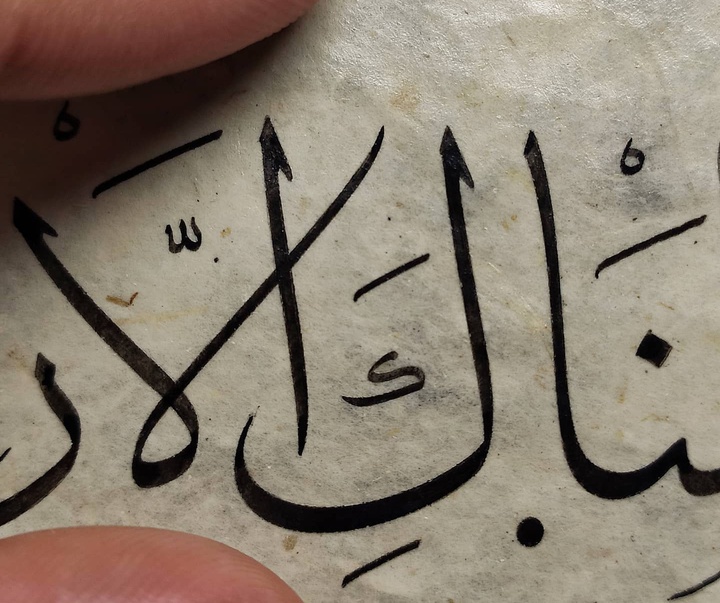 نَاكَ اِلَّا ر